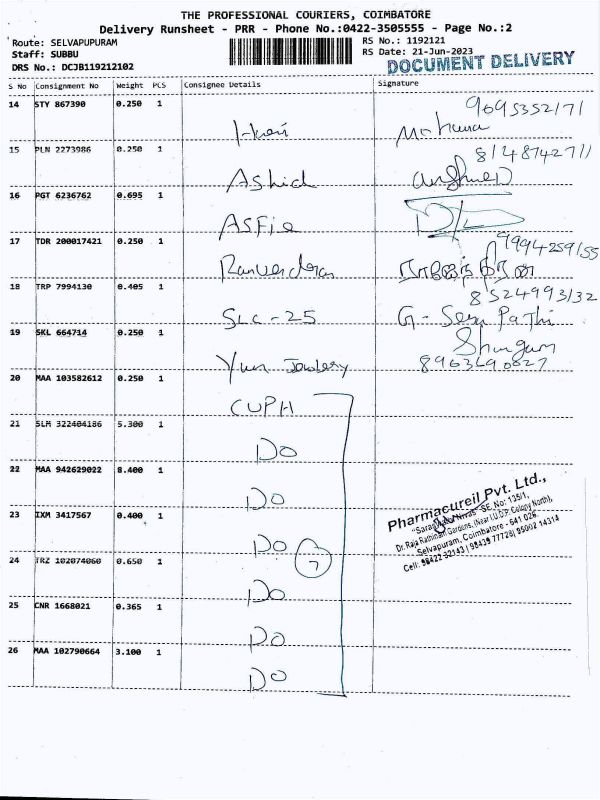 THE PROFESSIONAL COURIERS, COIMBATORE
Delivery Runsheet - PRR - Phone No.:0422-3505555 - Page No.:2
Route: SELVAPUPURAM
Staff: SUBBU
DRS No.: DCJB119212102
RS No.: 1192121
RS Date: 21-Jun-2023
DOCUMENT DELIVERY
S No Consignment No Weight PCS Consignee Details Signature
14 STY 867390 0.250 1
9695352171
15 PLN 2273986 0.250 1
8148742711
Ashid
16 PGT 6236762 0.695 1
ASFie
17 TDR 200017421 0.250 1
9994259155
18 TRP 7994130 0.405 1
8524993132
SLC-25 G- Sesu Pathi
19 SKL 664714 0.250 1
8963690027
20 MAA 103582612 0.250 1
CUPH
21 SLM 322404186 5.300 1
Do
22 MAA 942629022 8.400 1
Do
23 IXM 3417567 0.400 1
Do 7
24 TRZ 102074060 0.650 1
Do
25 CNR 1668021 0.365 1
Do
26 MAA 102790664 3.100 1
Do
Pharmacureil Pvt. Ltd.,
Nivas" SF. No: 135/1,
Dr. Raja Rathinam Gardens, (Near I.U.D.P. Colony North),
Selvapuram, Coimbatore - 641 026.
Cell: 98422 32143 | 98439 77728 | 95002 14314